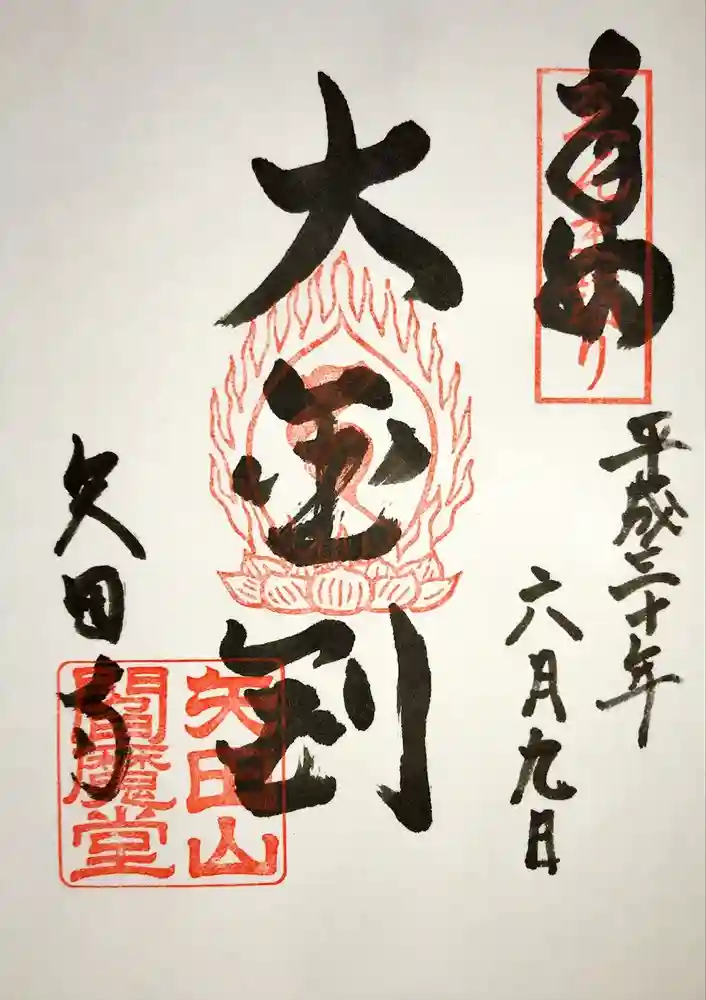 平成三十年
六月九日
大金剛
矢田寺
矢田山
閻魔堂